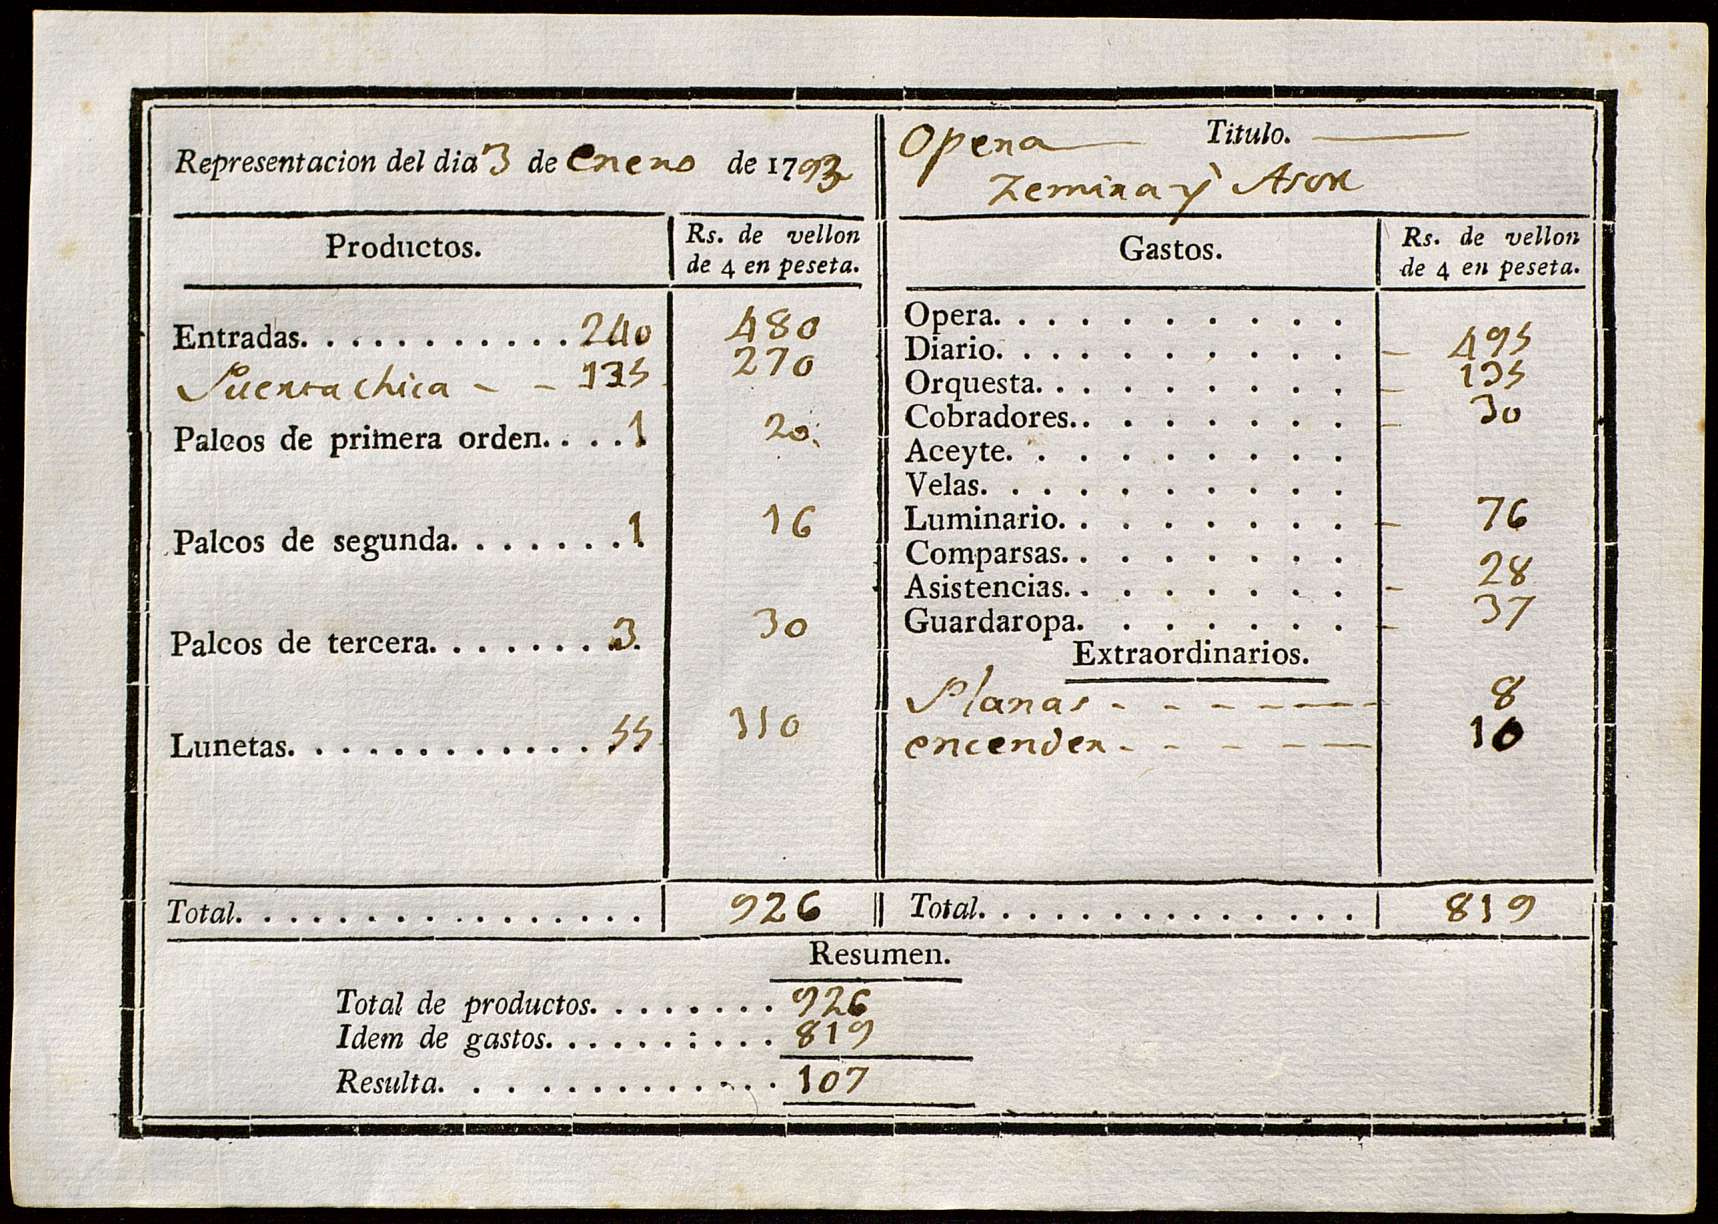 Representacion del dia 3 de Enero de 1793
Opera Titulo.
Zemira y Asor
Productos.
Rs. de vellon
de 4 en peseta.
Entradas. 240 480
Puerta chica - - 135 270
Palcos de primera orden. 1 20
Palcos de segunda. 1 16
Palcos de tercera. 3 30
Lunetas. 55 110
Total. 926
Gastos.
Rs. de vellon
de 4 en peseta.
Opera.
Diario. 495
Orquesta. 135
Cobradores. 30
Aceyte.
Velas.
Luminario. 76
Comparsas.
Asistencias. 28
Guardaropa. 37
Extraordinarios.
Planas 8
encender 10
Total. 819
Resumen.
Total de productos. 926
Idem de gastos. 819
Resulta. 107